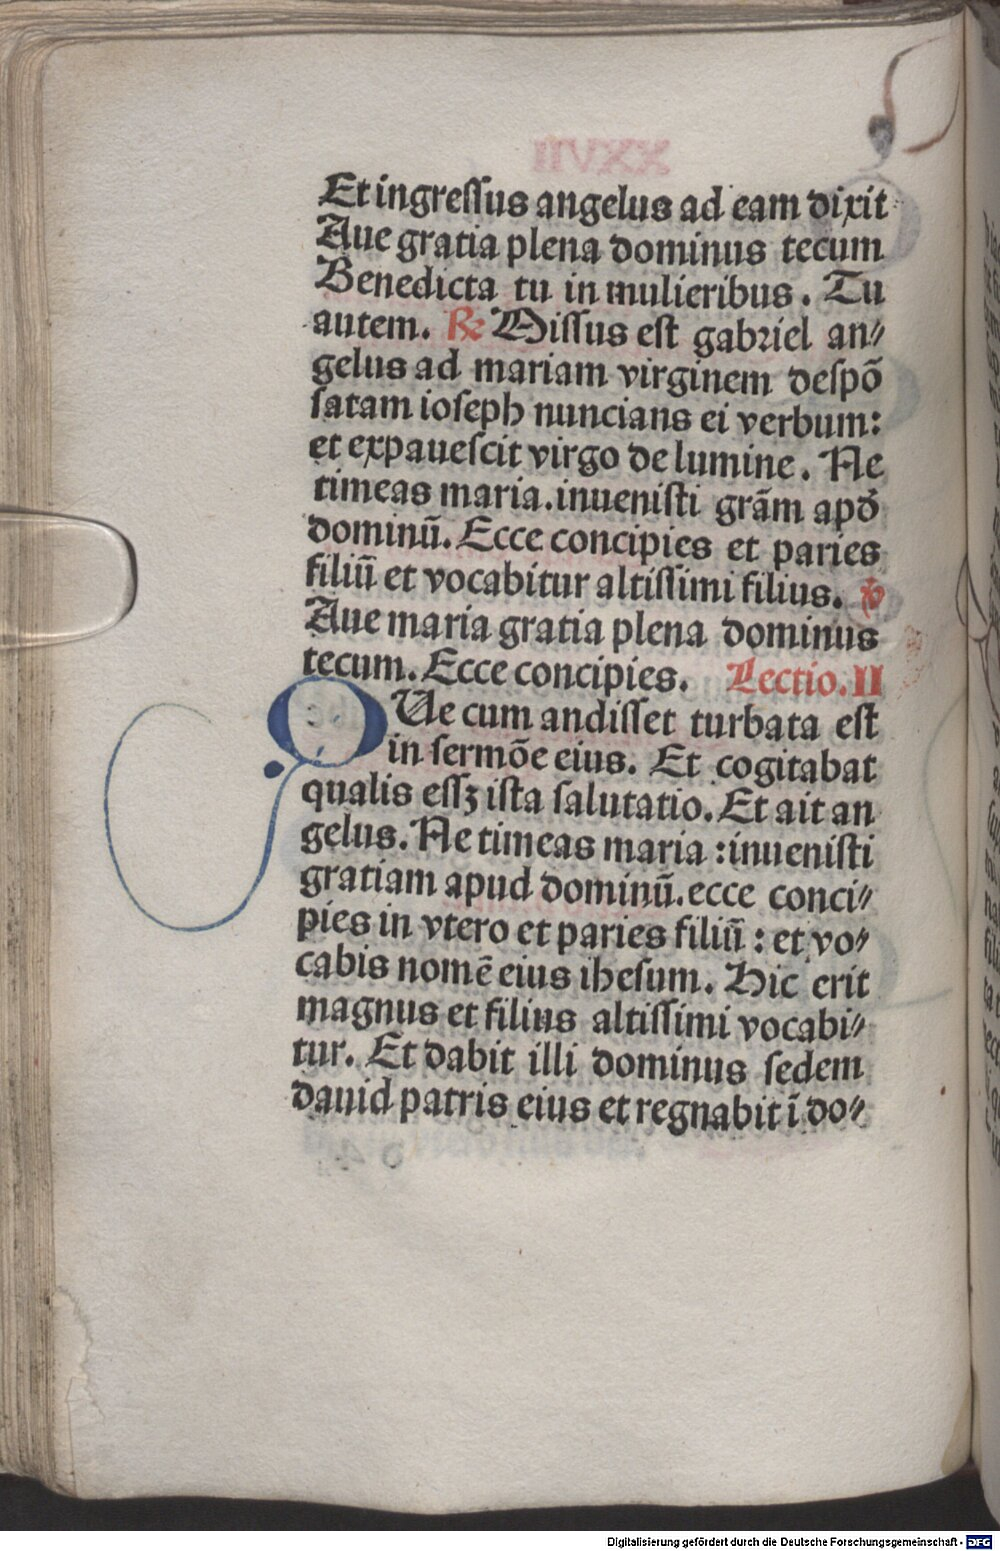 Et ingreſſus angelus ad eam dixit
Aue gratia plena dominus tecum
Benedicta tu in mulieribus. Tu
autem. ℟ Miſſus eſt gabriel an⸗
gelus ad mariam virginem deſpō
ſatam ioſeph nuncians ei verbum:
et expaueſcit virgo de lumine. Ne
timeas maria.inueniſti grām apđ
dominū. Ecce concipies et paries
filiū et vocabitur altiſſimi filius. ℣
Aue maria gratia plena dominus
tecum. Ecce concipies. Lectio. II
QUe cum andiſſet turbata eſt
in ſermōe eius. Et cogitabat
qualis eſſꝫ iſta ſalutatio. Et ait an
gelus. Ne timeas maria :inueniſti
gratiam apud dominū.ecce conci⸗
pies in vtero et paries filiū : et vo⸗
cabis nomē eius iheſum. Hic erit
magnus et filius altiſſimi vocabi⸗
tur. Et dabit illi dominus ſedem
dauid patris eius et regnabit ī do⸗
Digitalisierung gefördert durch die Deutsche Forschungsgemeinschaft - DFG